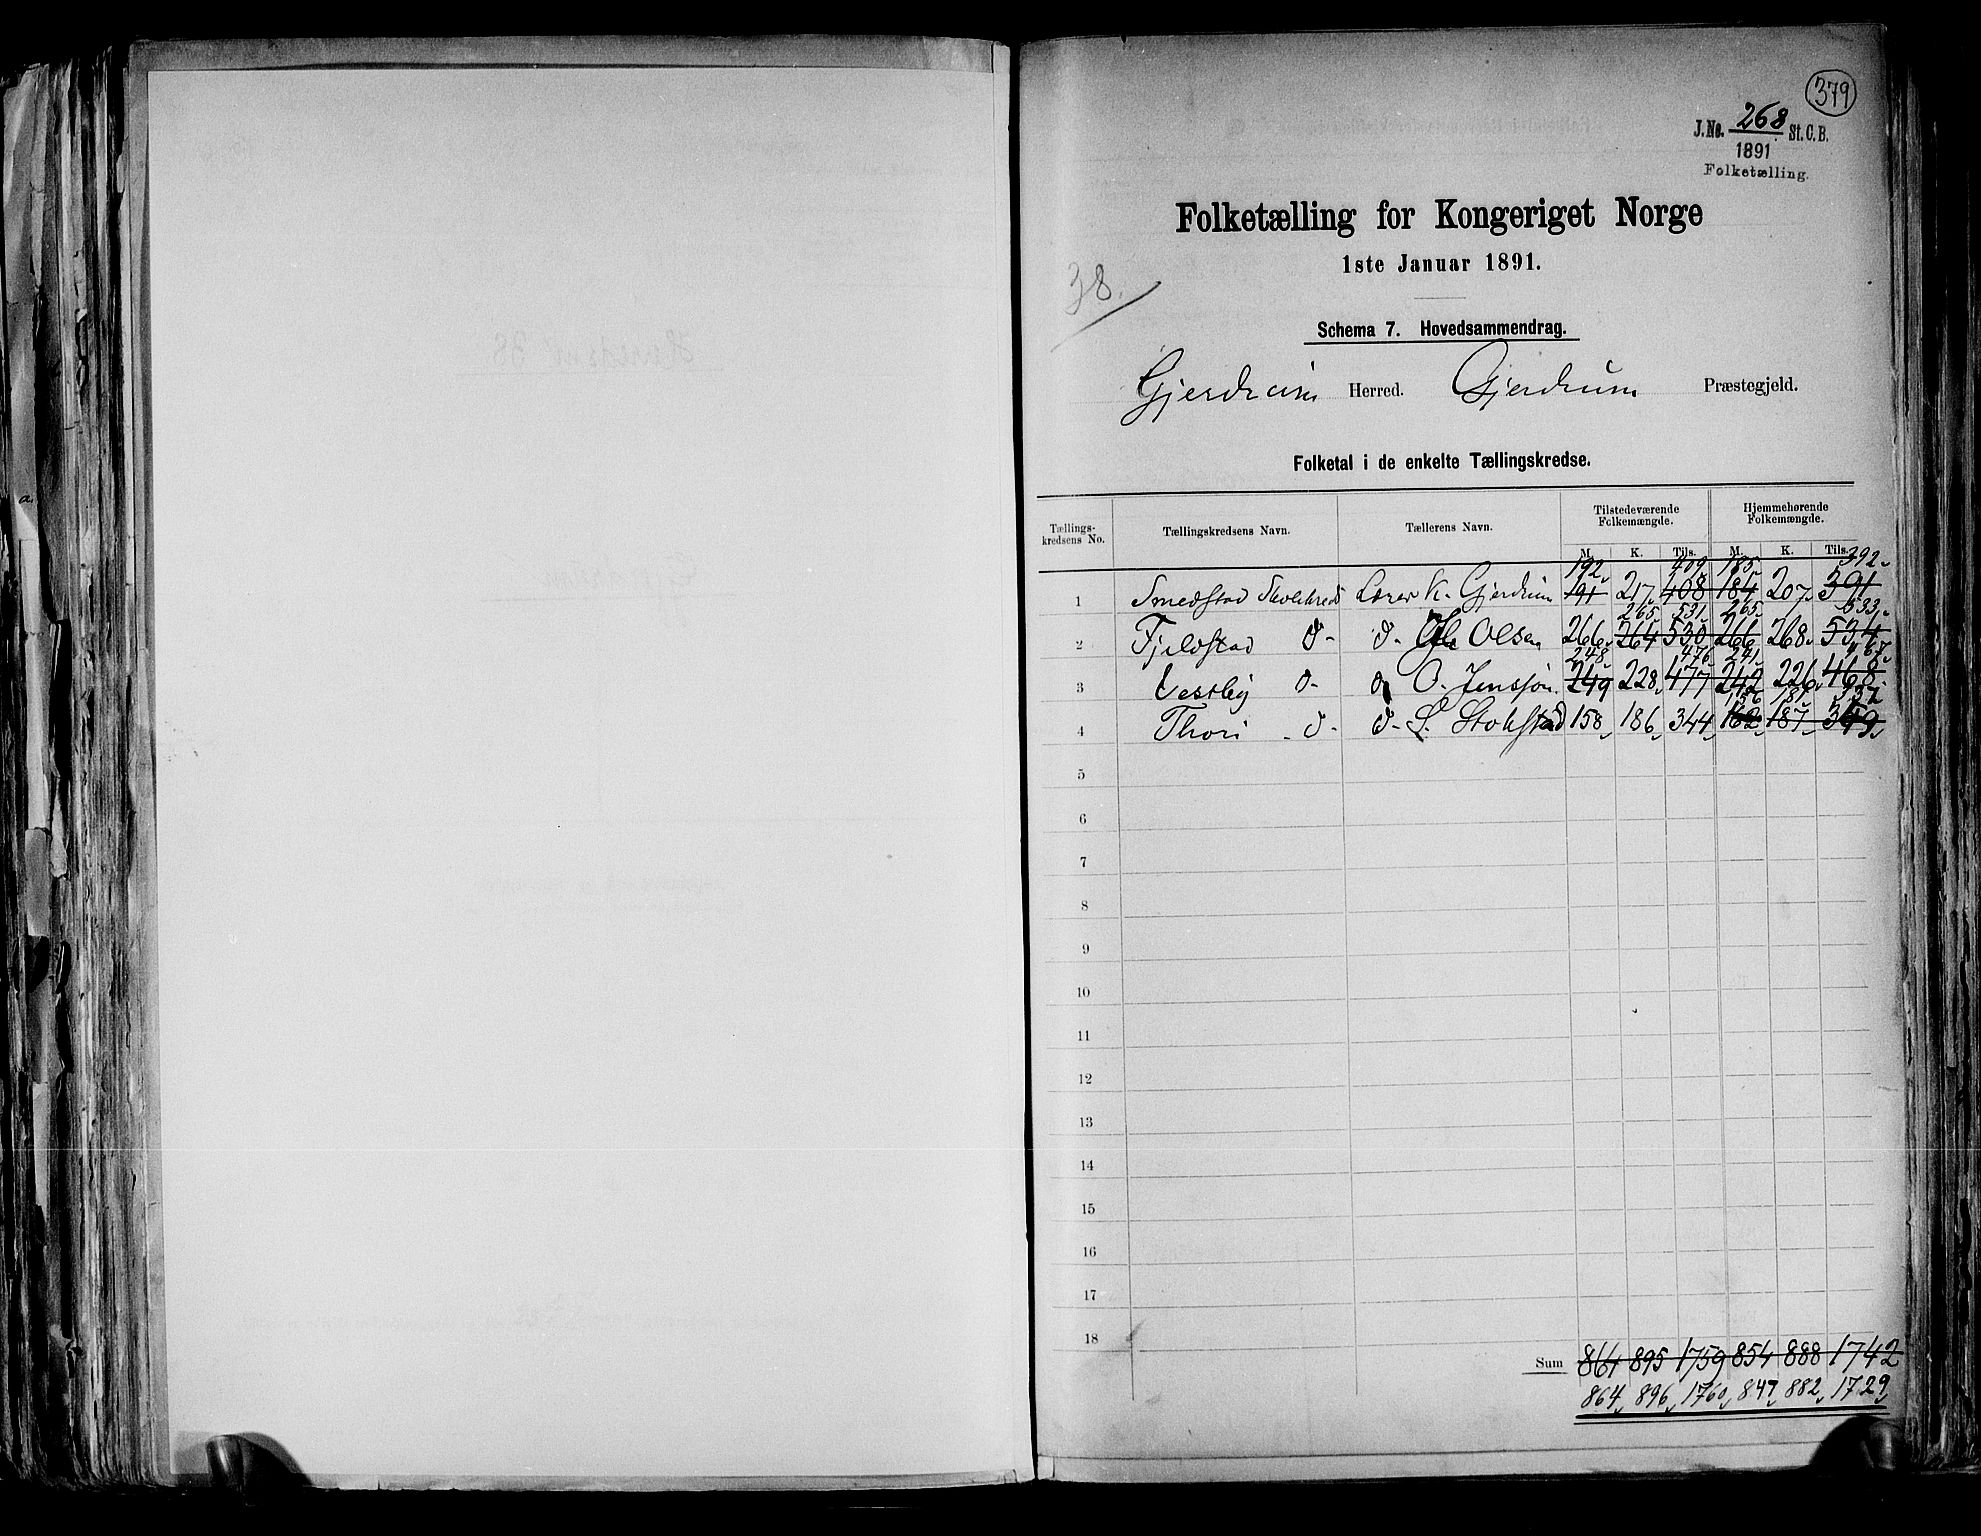 379
J. No. 268 St. C. B.
1891
Folketælling.
Folketælling for Kongeriget Norge
1ste Januar 1891.
38.
Schema 7. Hovedsammendrag.
Gjerdrum Herred. Gjerdrum Præstegjeld.
Folketal i de enkelte Tællingskredse.
Tællingskredsens No. Tællingskredsens Navn. Tællerens Navn. Tilstedeværende Folkemængde. Hjemmehørende Folkemængde.
M. K. Tils. M. K. Tils.
192 409 185 392
1 Smedstad Skolekreds Lærer K. Gjerdrum 191 217 408 184 207 391
265 531 265 533
2 Fjeldstad d- d- Ole Olsen 266 264 530 266 268 534
248 476 241 467
3 Vestby d- d O. Jensson 249 228 477 242 226 468
156 181 337
4 Thori d- d- L. 158 186 344 162 187 349
5
6
7
8
9
10
11
12
13
14
15
16
17
18
Sum 864 895 1759 854 888 1742
864 896 1760 847 882 1729